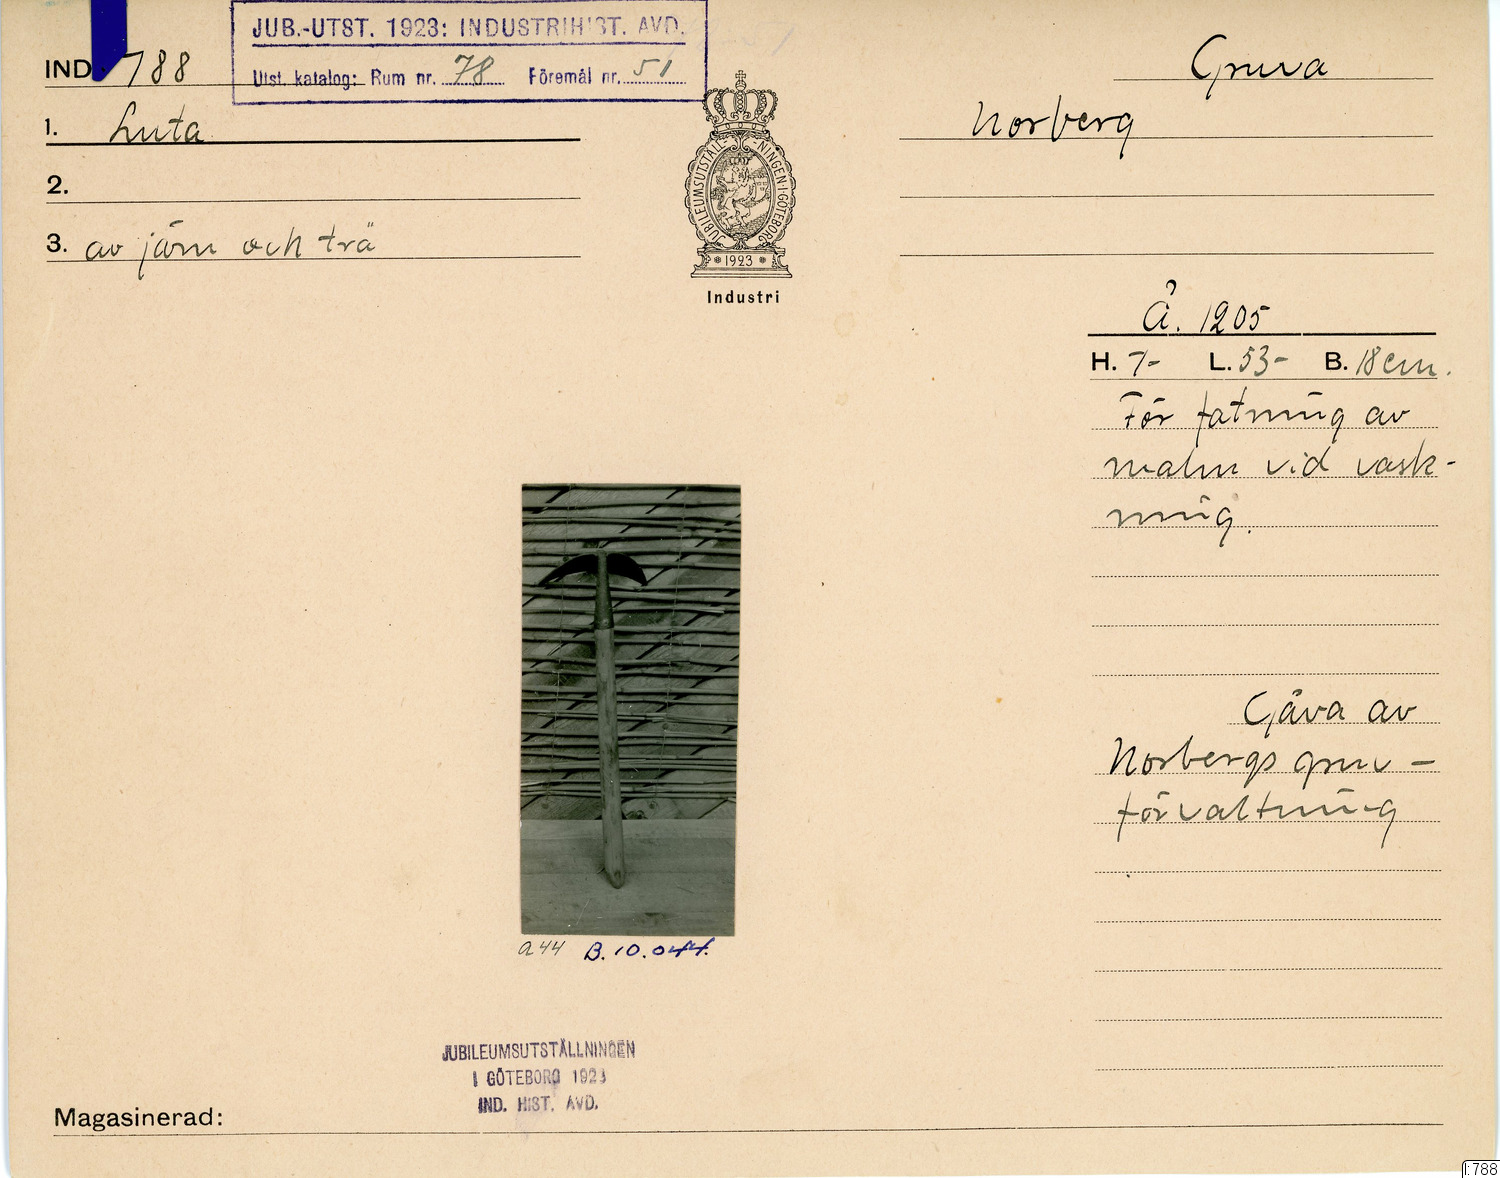 JUB.-UTST. 1923: INDUSTRIHIST. AVD.
Utst. katalog: Rum nr. 78 Föremål nr. 51
IND. 788
1. Luta
2.
3. av järn och trä
JUBILEUMSUTSTÄLL-NINGEN·I·GÖTEBORG
1923
Industri
Gruva
Norberg
Å. 1205
H. 7- L. 53- B. 18 cm.
För fatning av
malm vid vask-
ning.
Gåva av
Norbergs gruv-
förvaltning
a 44 B. 10.044.
JUBILEUMSUTSTÄLLNINGEN
I GÖTEBORG 1923
IND. HIST. AVD.
Magasinerad:
I:788